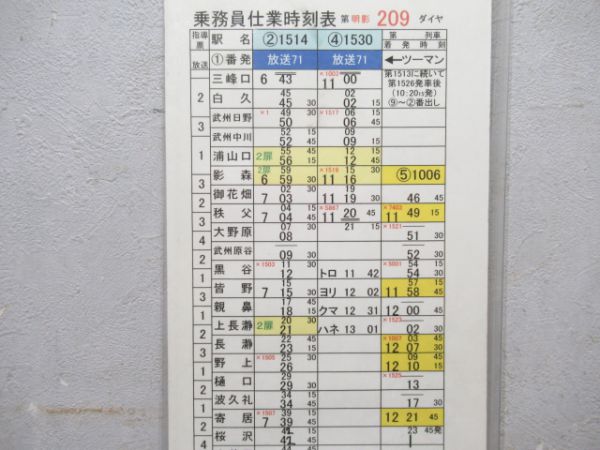 乗務員仕業時刻表 第 明影 209 ダイヤ
指導票 駅名 ②1514 ④1530 第 列車
放送 ①番発 放送71 放送71 着発時刻
←ツーマン
三峰口 6 43 ×1003 11 00 第1513に続いて
2 第1526発車後
白久 45 45 30 02 02 15 (10:20 15発)
⑨〜②番出し
3 武州日野 ×1 49 50 30 ×1517 06 06 15 45
武州中川 52 52 15 45 09 09 15 45
1 浦山口 2扉 55 56 45 15 12 12 15 45
影森 2扉 6 59 59 30 ×1519 11 15 16 30 ⑤1006
3 御花畑 7 02 03 30 11 19 19 30 46 45
3 秩父 7 04 04 15 45 ×5667 11 20 45 ×7403 11 49 15
4 大野原 07 08 21 15 ×1521 51 30
武州原谷 09 00 30 52 30
1 黒谷 ×1503 11 12 30 トロ 11 42 ×5001 54 54 15 30
3 皆野 7 15 15 30 ヨリ 12 02 11 57 58 15 45
1 親鼻 17 18 45 15 クマ 12 31 12 00 45
上長瀞 2扉 20 21 30 ハネ 13 01 02 30
2 長瀞 22 23 45 15 ×1007 12 03 07 45 30
1 野上 ×1505 25 26 30 12 09 10 45 15
2 樋口 29 29 30 ×1525 13
2 波久礼 34 34 15 45 17 30
2 寄居 ×1507 7 39 39 15 45 12 21 45
4 桜沢 23 45発